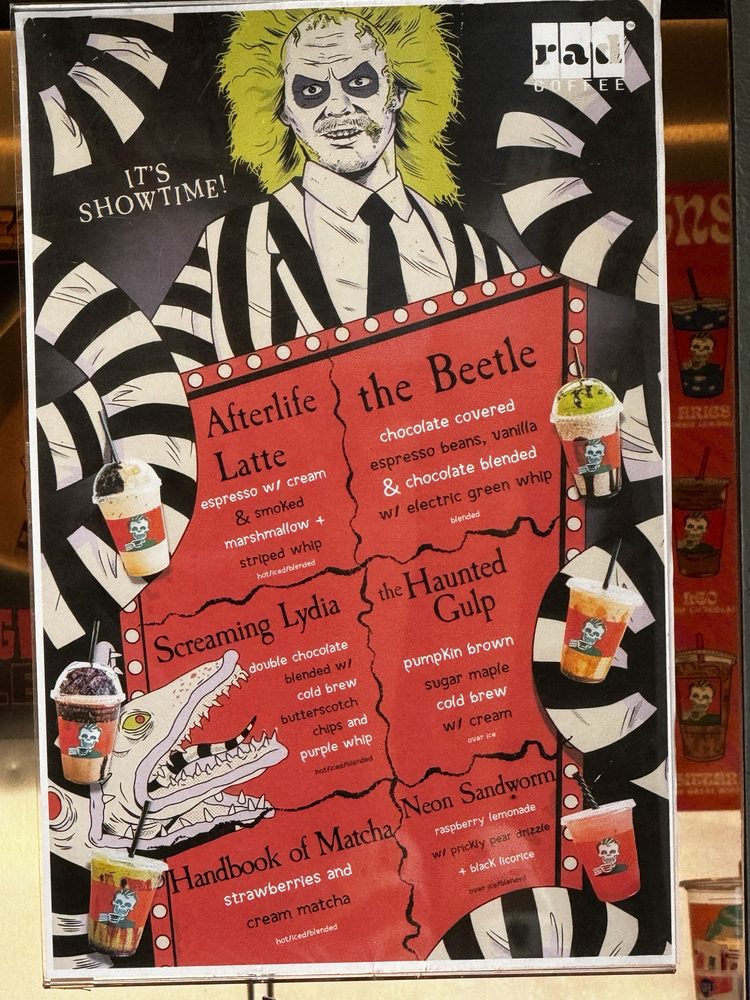 rad
COFFEE
IT'S
SHOWTIME!
Afterlife
Latte
espresso w/ cream
& smoked
marshmallow +
striped whip
hot/iced/blended
the Beetle
chocolate covered
espresso beans, vanilla
& chocolate blended
w/ electric green whip
blended
Screaming Lydia
double chocolate
blended w/
cold brew
butterscotch
chips and
purple whip
hot/iced/blended
the Haunted
Gulp
pumpkin brown
sugar maple
cold brew
w/ cream
over ice
Handbook of Matcha
strawberries and
cream matcha
hot/iced/blended
Neon Sandworm
raspberry lemonade
w/ prickly pear drizzle
+ black licorice
over ice/blended
ARIES
LEO